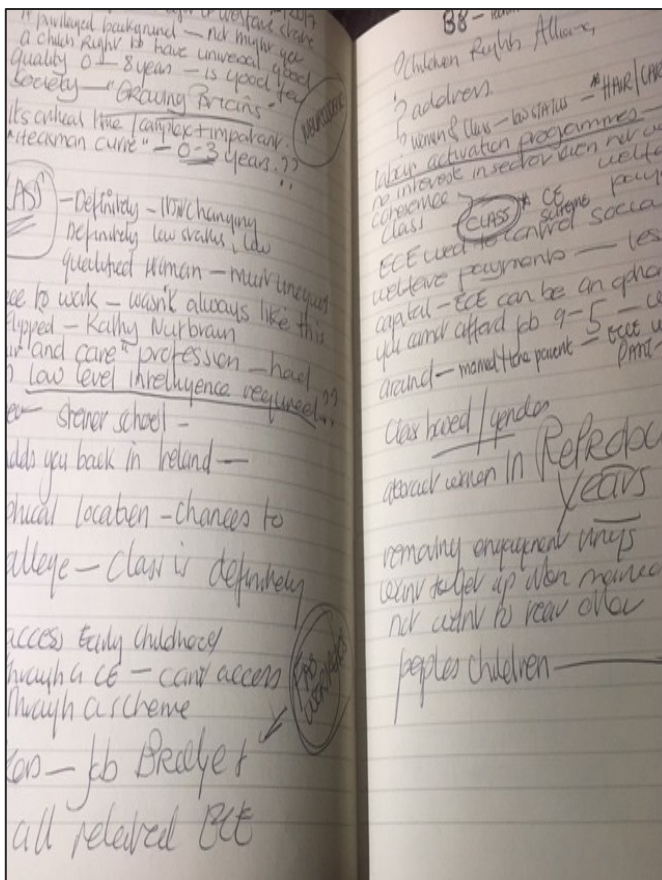 privileged background — not might get
a child's Right to have universal good
quality 0 — 8 years — is good for
Society — "Growing Brains"
its critical time / complex + important.
"Heckman curve" — 0-3 years.??
CLASS — Definitely — unchanging
Definitely low status, low
qualified woman —
ce to work — wasn't always like this
lipped — Kathy
and care" profession — had ??
low level intelligence required..
Steiner school —
adds you back in Ireland —
phical location — chances to
allege — Class is definitely
access Early childhood
through a CE — cant access
through a scheme
Job Bridge +
all related ECE
88 —
Children Rights Alliance,
? address.
? women & Class — low STATUS — *HAIR/CAR
labour activation programmes —
no interest in sector even not
coherence welfa
Class CLASS * CE scheme paym
ECE used to control socia
welfare payments — les
capital — ECE can be an
you cannot afford job 9-5 —
around — married + the parent — ECCE
PART-
Class based / gender
attract women in Reprodu
years
removing engagement rings
want to get up when married
not want to rear other
peoples children —